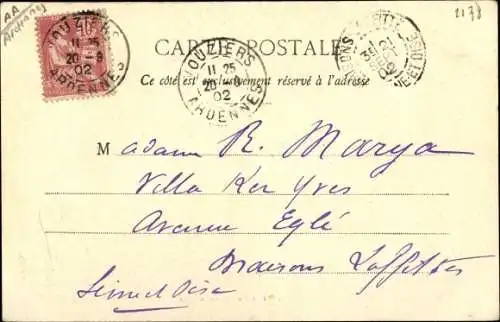 AA
Ardennes
2178
VOUZIERS
11 25
20 - 8
02
ARDENNES
CARTE POSTALE
VOUZIERS
11 25
20 - 8
02
ARDENNES
Ce côté est exclusivement réservé à l'adresse
Madame R. Marya
Villa Ker Yves
Avenue Eglé
Maisons Laffitte
Seine et Oise